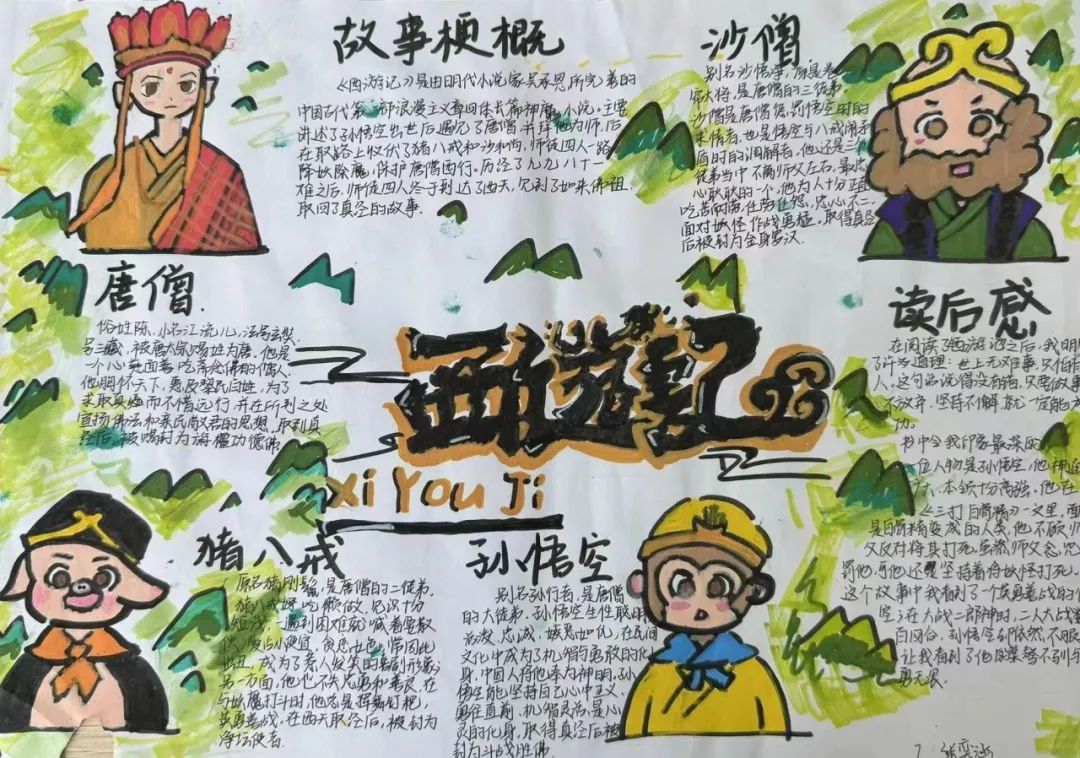 故事梗概
《西游记》是由明代小说家吴承恩所完善的
中国古代第一部浪漫主义章回体长篇神魔小说。主要
讲述了孙悟空出世后遇见了唐僧并拜他为师,后
在取路上收伏了猪八戒和沙和尚,师徒四人一路
降妖除魔,保护唐僧西行,历经了九九八十一
难之后,师徒四人终于到达了西天,见到了如来佛祖,
取回了真经的故事.
沙僧
别名沙悟净,原是卷
帘大将,是唐僧的三徒弟.
沙僧是唐僧惩罚悟空时的
求情者,也是悟空与八戒闹矛
盾时的调解者,他还是三个
徒弟当中不离师父左右,最忠
心耿耿的一个,他为人十分正直
吃苦耐劳,任劳任怨,忠心不二,
面对妖怪作战勇猛,取得真经
后被封为金身罗汉.
唐僧.
俗姓陈,小名江流儿,法号玄奘
号三藏,被唐太宗赐姓为唐。他是
一个心
他胸怀天下,惠及黎民百姓,为了
求取真经而不惜远行,并在所到之处
宣扬佛法和亲民敬君的思想,取到真
经后,被赐封为旃檀功德佛.
西游记
Xi You Ji
读后感
在阅读了西游记之后,我明
了许多道理:世上无难事,只怕有
人。这句话说得没有错,只要做事
不放弃,坚持不懈,就一定能成
功.
书中令我印象最深的
一位人物是孙悟空,他神通
广大,本领十分高强,他在
《三打白骨精》一文里,面
是白骨精变成的人类,他不顾师
父反对将其打死,虽然师父念咒
罚他,可他还是坚持着将妖怪打死.
这个故事中我看到了一个英勇善战的
空;在大战二郎神时,二人大战
百回合,孙悟空
让我看到了他
勇无畏.
猪八戒
原名猪刚鬣,是唐僧的二徒弟.
猪八戒好吃懒做,见识十分
短浅,一遇到困难就喊着要散
伙,爱占小便宜,贪恋女色,常因此
出丑,成为了惹人发笑的喜剧形象
另一方面,他也不失忠勇和善良,在
与妖魔打斗时,他总是挥舞钉耙,
英勇善战,在西天取经后,被封为
净坛使者.
孙悟空
别名孙行者,是唐僧
的大徒弟.孙悟空生性聪明
活泼,忠诚,嫉恶如仇,在民间
文化中成为了机智的勇敢的化
身,中国人将他奉为神明,孙
悟空能坚持自己心中正义
勇往直前,机智灵活,是心
灵的化身,取得真经后被
封为斗战胜佛.